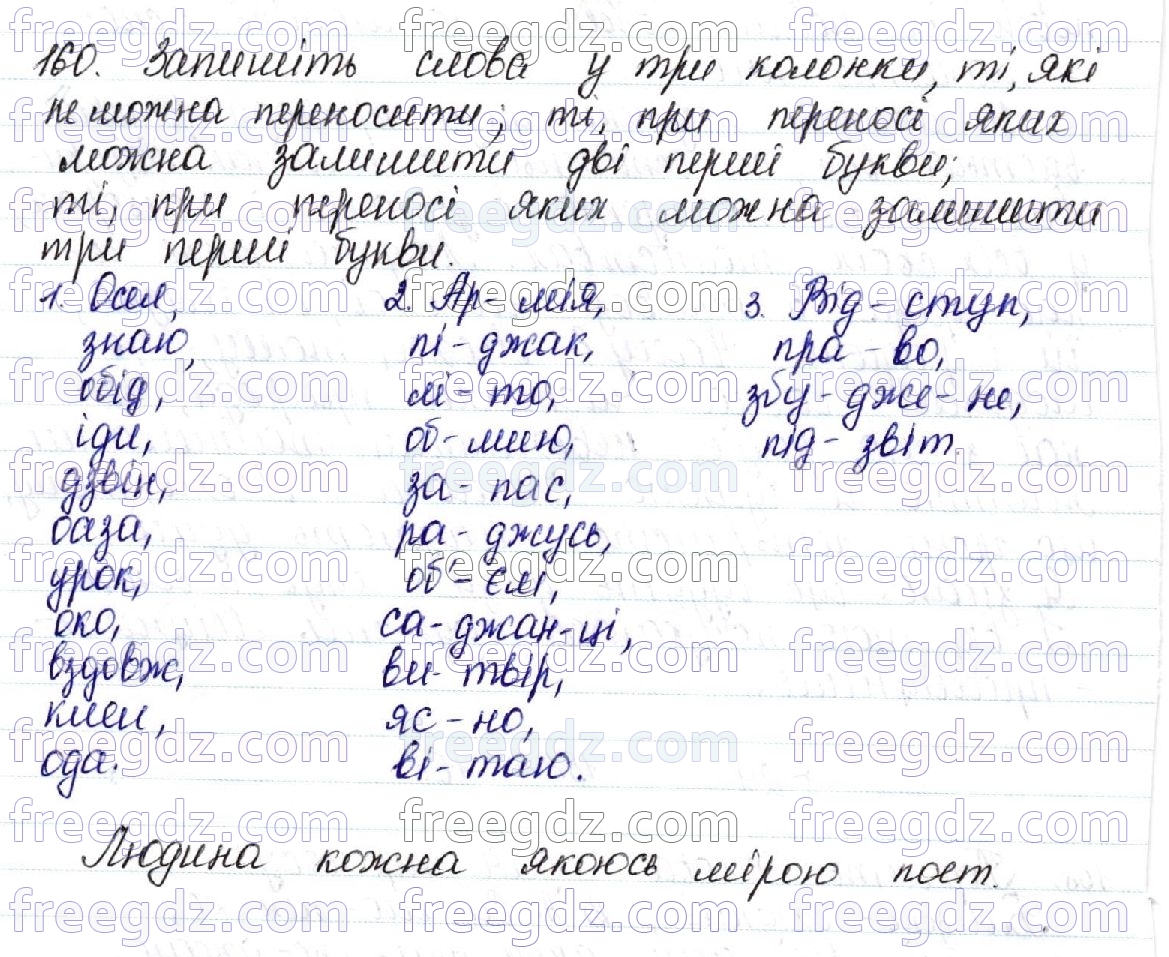 160. Запишіть слова у три колонки, ті, які
не можна переносити; ті, при переносі яких
можна залишити дві перші букви;
ті, при переносі яких можна залишити
три перші букви.
1. Осел, 2. Ар-мія, 3. Від-ступ,
знаю, пі-джак, пра-во,
обід, лі-то, збу-дже-не,
іди, об-мию, під-звіт.
дзвін, за-пас,
оаза, ра-джусь,
урок, об'-ємі,
око, са-джан-ці,
вздовж, ви-твір,
клен, яс-но,
ода. ві-таю.
Людина кожна якоюсь мірою поет.
freegdz.com